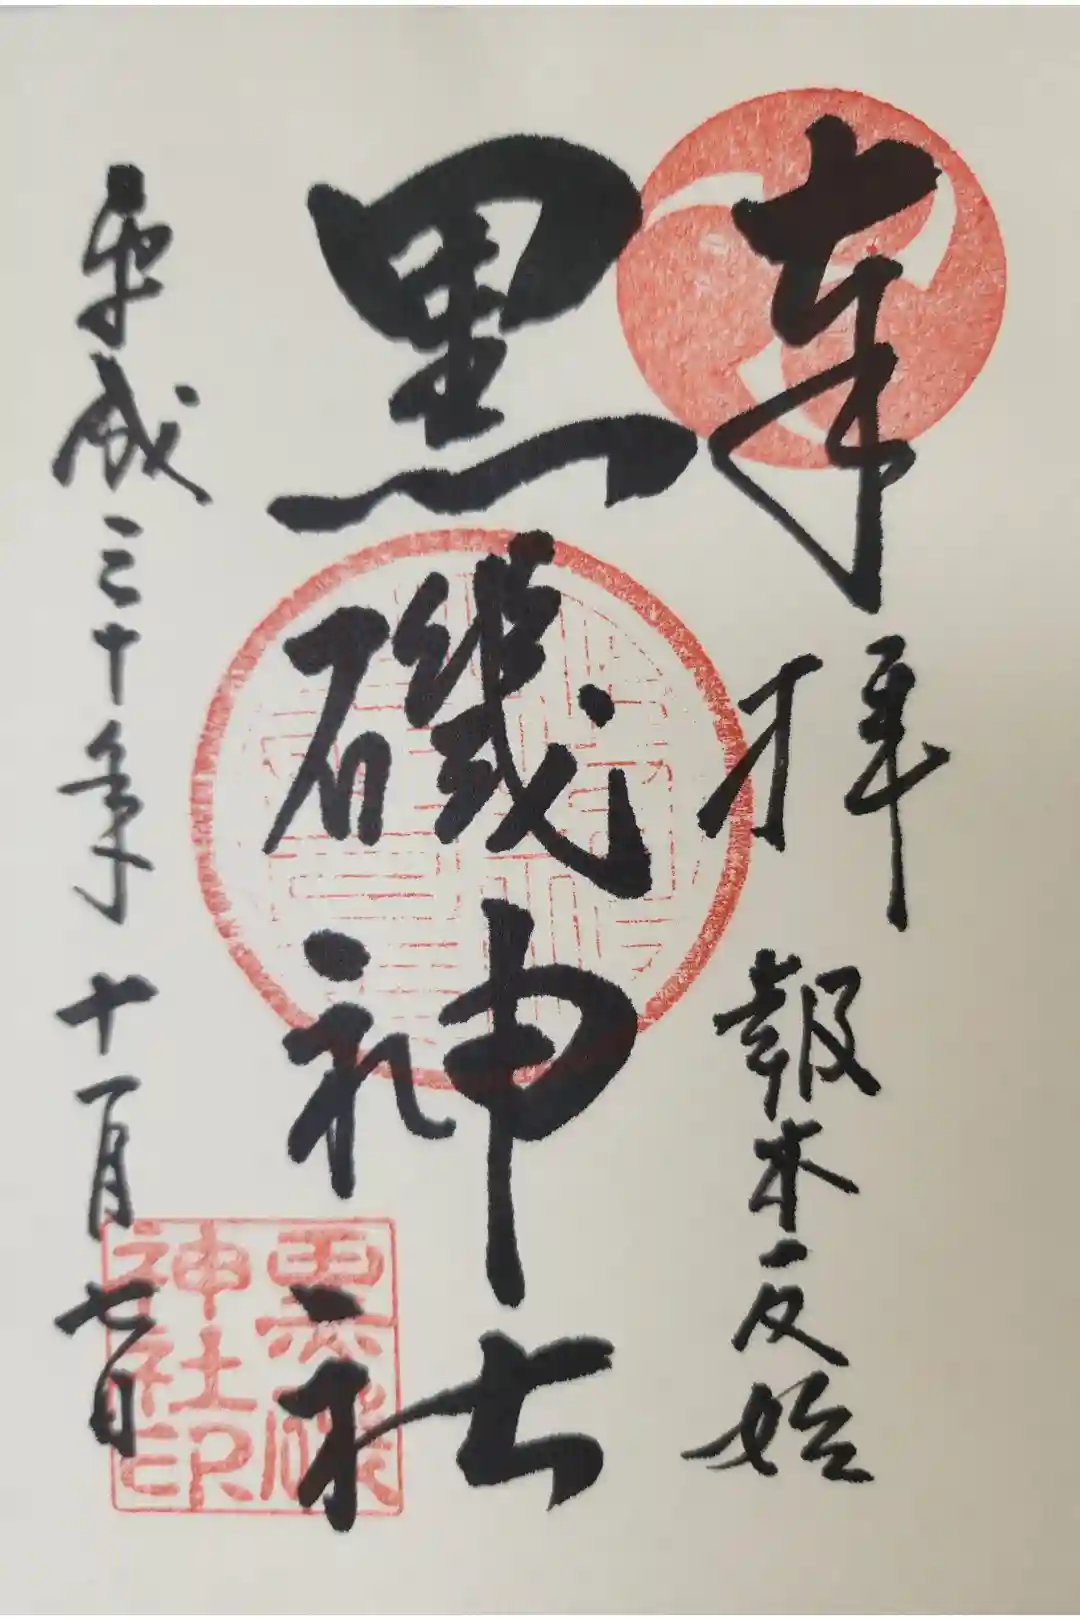 奉拝 報本反始
黒磯神社
平成三十年十一月七日
黒磯
神社印